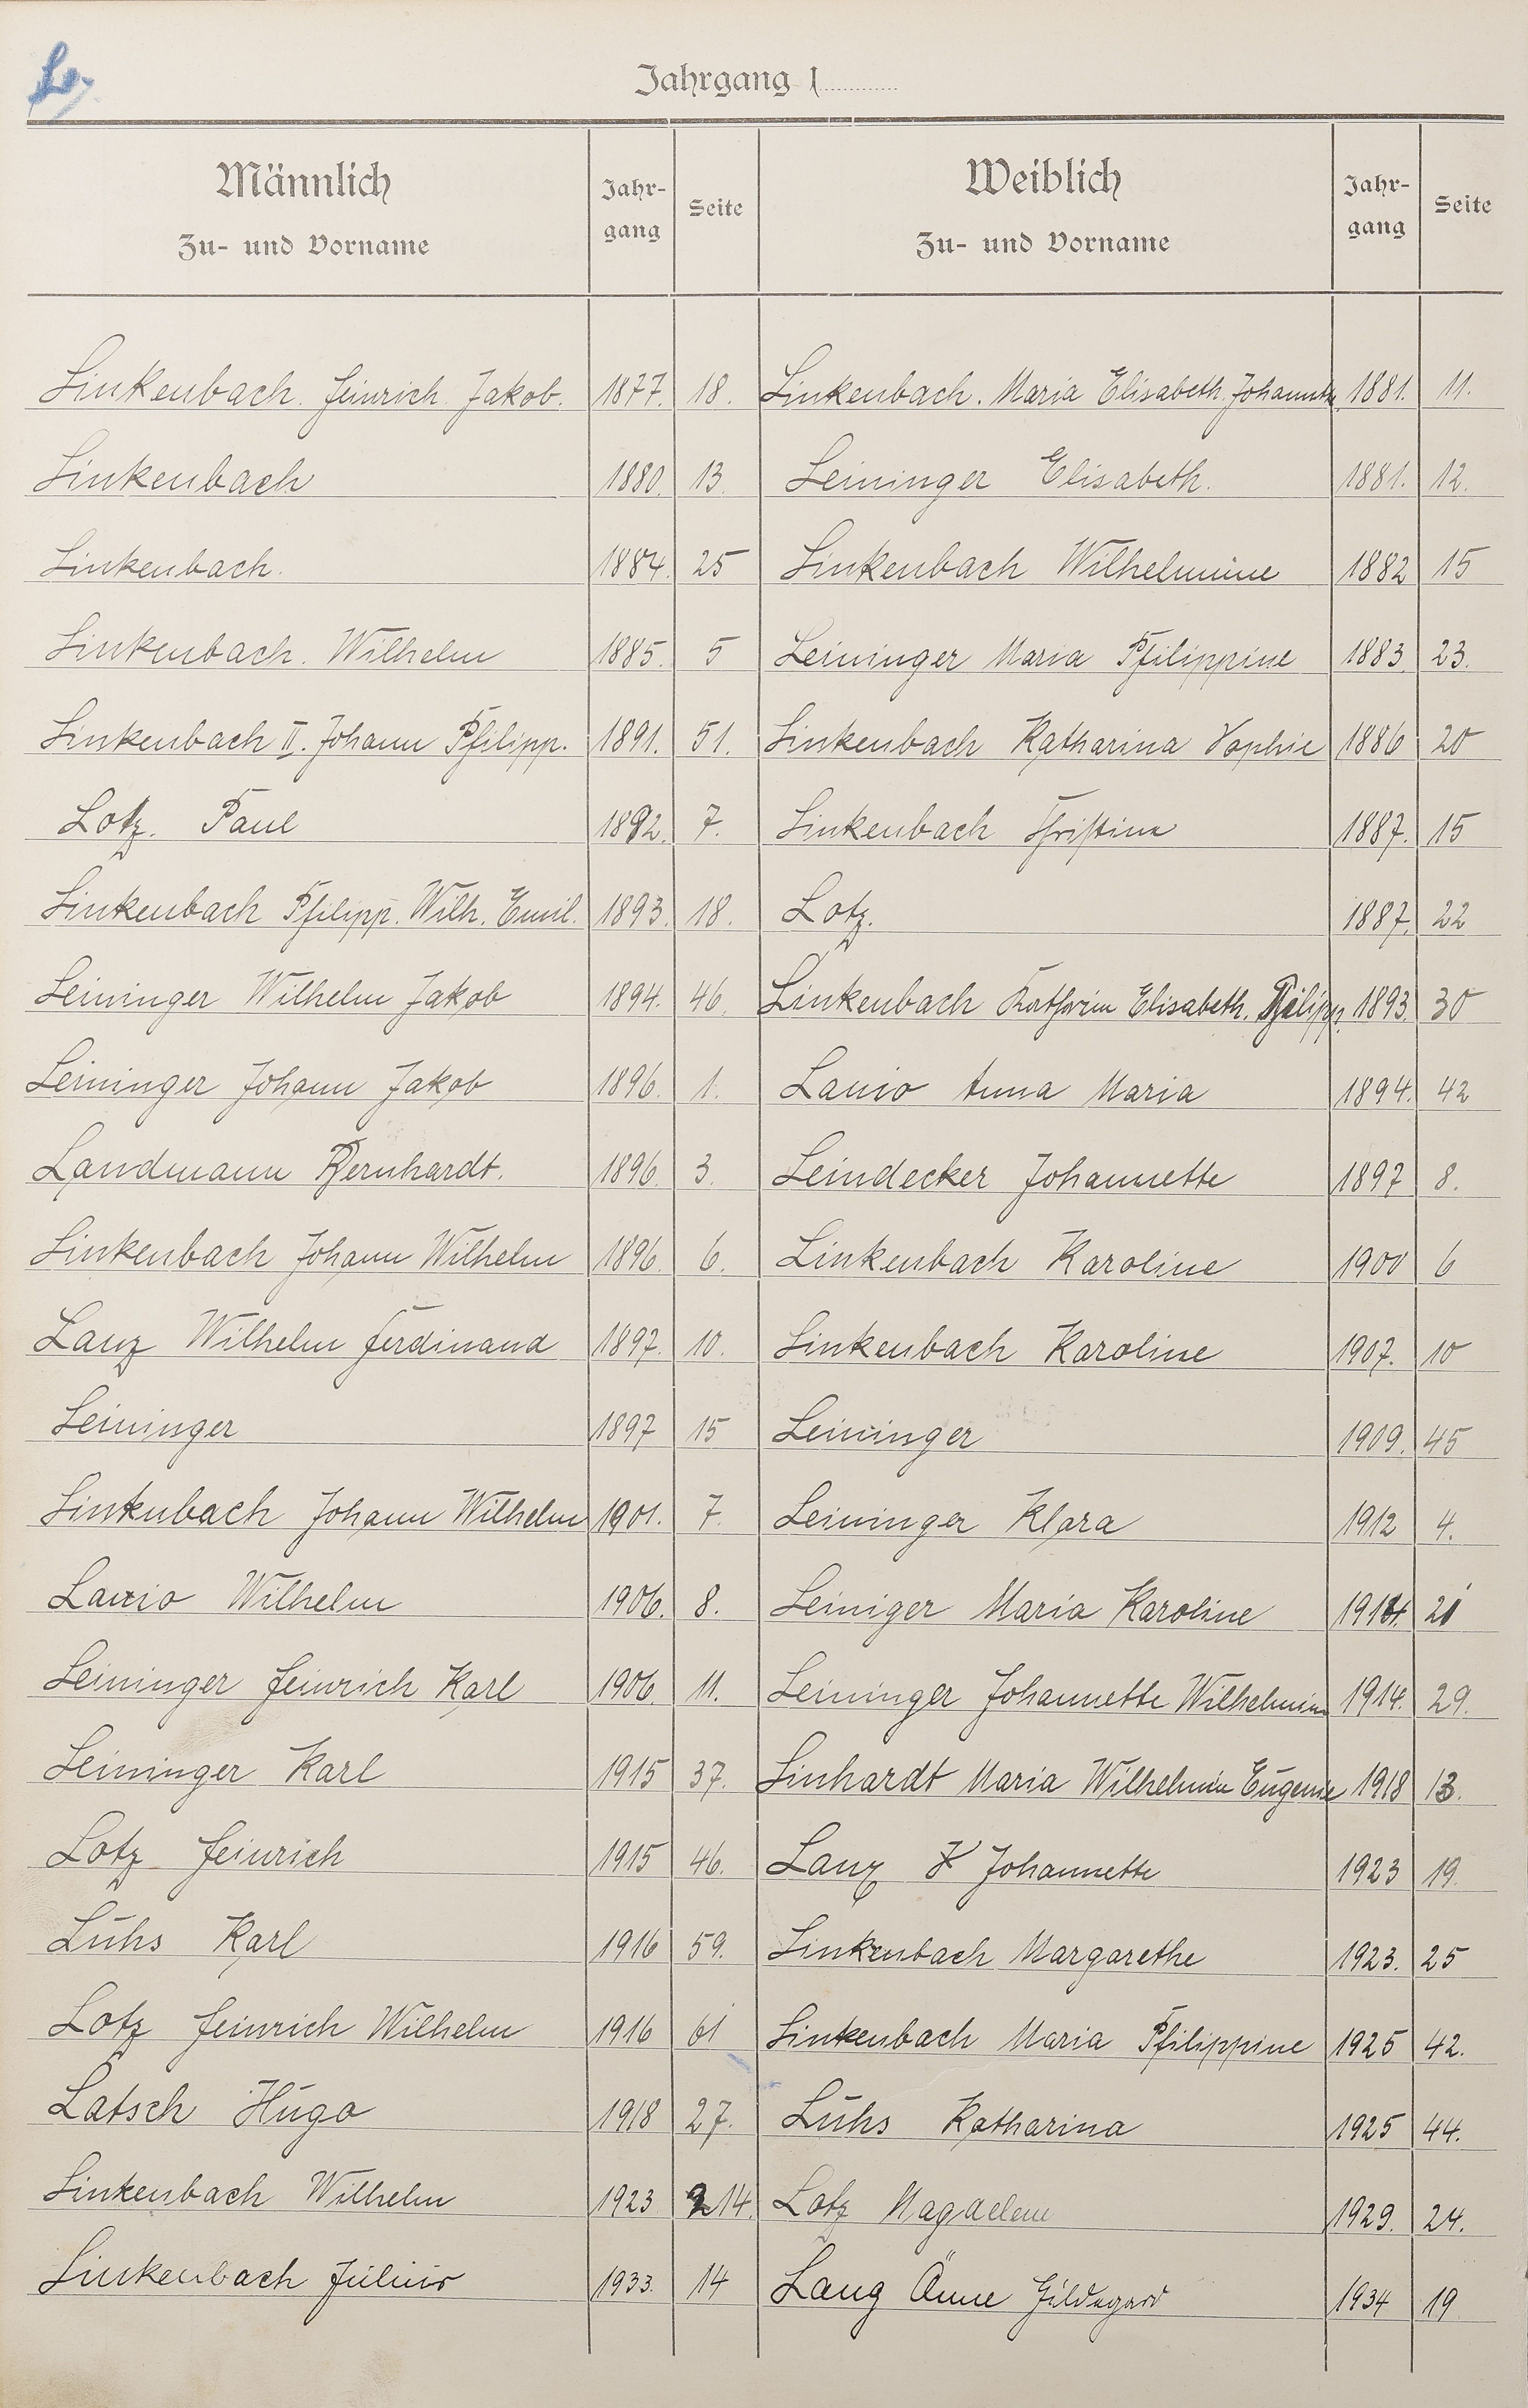 L.
Jahrgang 1
Männlich Jahr- Seite Weiblich Jahr- Seite
Zu- und Vorname gang Zu- und Vorname gang
Linkenbach. Heinrich Jakob. 1877. 18. Linkenbach. Maria Elisabeth. Johannette 1881. 11.
Linkenbach 1880. 13. Leininger Elisabeth. 1881. 12.
Linkenbach. 1884. 25 Linkenbach Wilhelmine 1882 15
Linkenbach. Wilhelm 1885. 5 Leininger Maria Philippine 1883. 23.
Linkenbach II. Johann Philipp. 1891. 51. Linkenbach Katharina Sophie 1886 20
Lotz. Paul 1892. 7. Linkenbach Christina 1887. 15
Linkenbach Philipp. Wilh. Emil. 1893. 18. Lotz. 1887. 22
Leininger Wilhelm Jakob 1894. 46. Linkenbach Katharina Elisabeth. Philipp. 1893. 30
Leininger Johann Jakob 1896. 1. Lanio Anna Maria 1894. 42
Landmann Bernhardt. 1896. 3. Leindecker Johannette 1897 8.
Linkenbach Johann Wilhelm 1896. 6. Linkenbach Karoline 1900 6
Lanz Wilhelm Ferdinand 1897. 10. Linkenbach Karoline 1907. 10
Leininger 1897 15 Leininger 1909. 45
Linkenbach Johann Wilhelm 1901. 7. Leininger Klara 1912 4.
Lanio Wilhelm 1906. 8. Leiniger Maria Karoline 1914. 21
Leininger Heinrich Karl 1906. 11. Leininger Johannette Wilhelmine 1914. 29.
Leininger Karl 1915 37. Linhardt Maria Wilhelmine Eugenie 1918 13.
Lotz Heinrich 1915 46. Lanz Johannette 1923 19.
Lühs Karl 1916 59. Linkenbach Margarethe 1923. 25
Lotz Heinrich Wilhelm 1916 61 Linkenbach Maria Philippine 1925 42.
Latsch Hugo 1918 27. Lühs Katharina 1925 44.
Linkenbach Wilhelm 1923 14. Lotz Magdalene 1929. 24.
Linkenbach Julius 1933. 14 Lang Änne Hildegard 1934 19